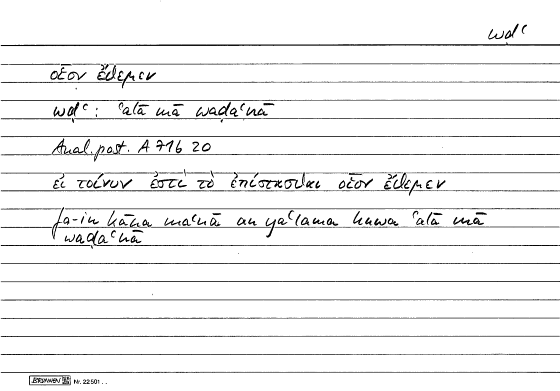 wḍʿ
οἷον ἔθεμεν
wḍʿ : ʿalā mā waḍaʿnā
Anal. post. A 71b 20
εἰ τοίνυν ἐστὶ τὸ ἐπίστασθαι οἷον ἔθεμεν
fa-in kāna maʿnā an yaʿlama huwa ʿalā mā
waḍaʿnā
BRUNNEN Nr. 22501 . .